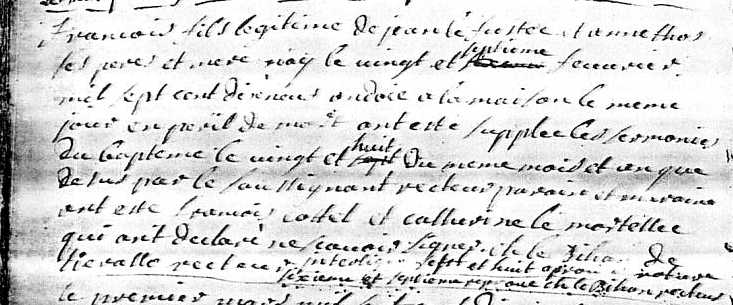 francois fils legitime de jean le fustec et anne thos
ses peres et mere nay le vingt et septieme feuvrier
mil sept cent dixneuf ondoié a la maison le meme
jour en peril de mort ont esté supplée les sermonies
du bapteme le vingt et huit du meme mois et an que
desus par le soussignant recteur parain et maraine
ont esté francois cottel et catherine le mortellec
qui ont declaré ne scavoir signer ch le Bihan de
recteur interligne sept et huit aprouvé
sixieme et septieme ch le Bihan recteur
le premier mars mil sept